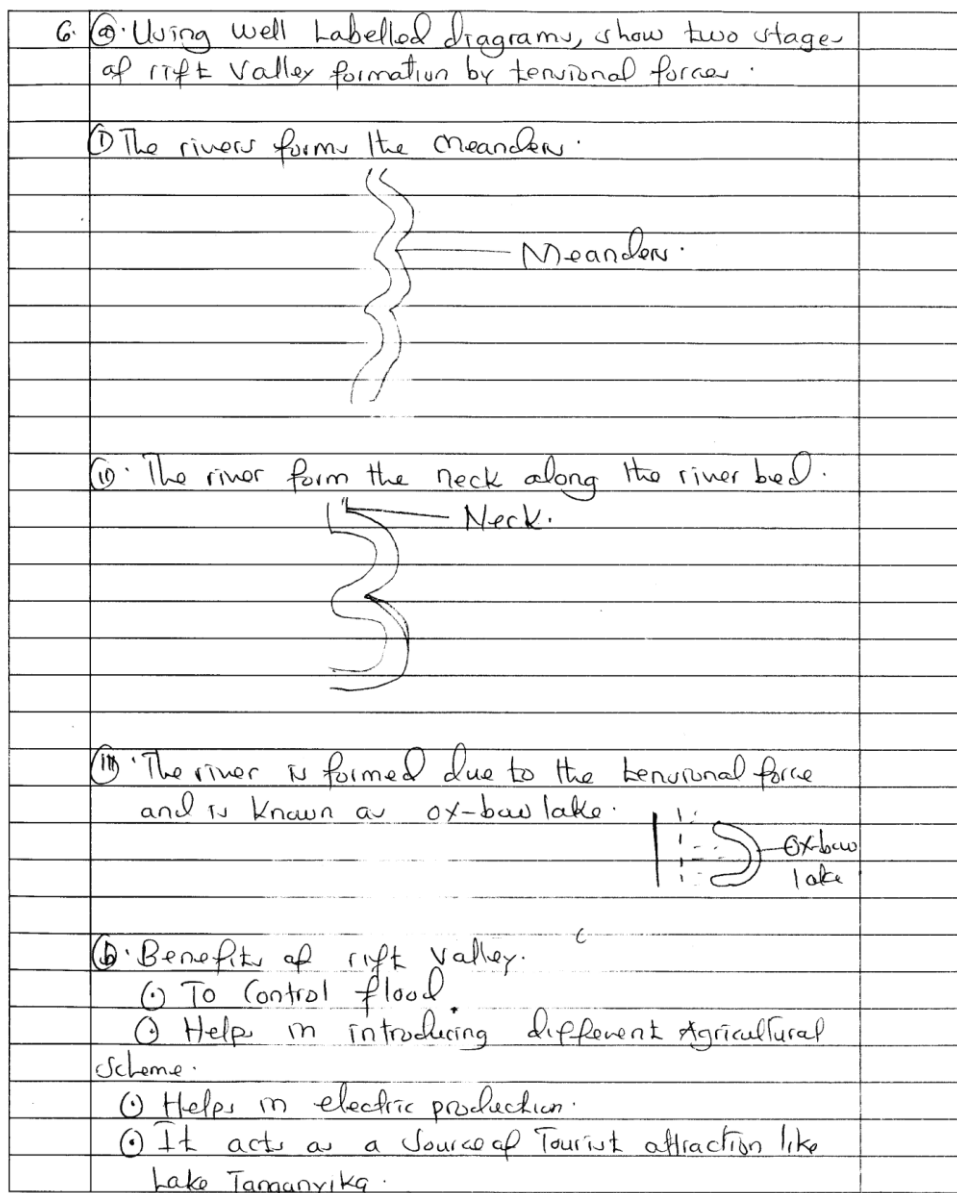 6. (a). Using well Labelled diagrams, show two stages
of rift valley formation by tensional forces.
(i) The rivers forms the meanders.
Meanders.
(ii). The river form the neck along the river bed.
Neck.
(iii). The river is formed due to the tensional force
and is known as ox-bow lake.
Ox-bow
lake
(b). Benefits of rift valley.
(.) To Control flood.
(.) Helps in introducing different Agricultural
Scheme.
(.) Helps in electric production.
(.) It acts as a Source of Tourist attraction like
Lake Tamanyika.